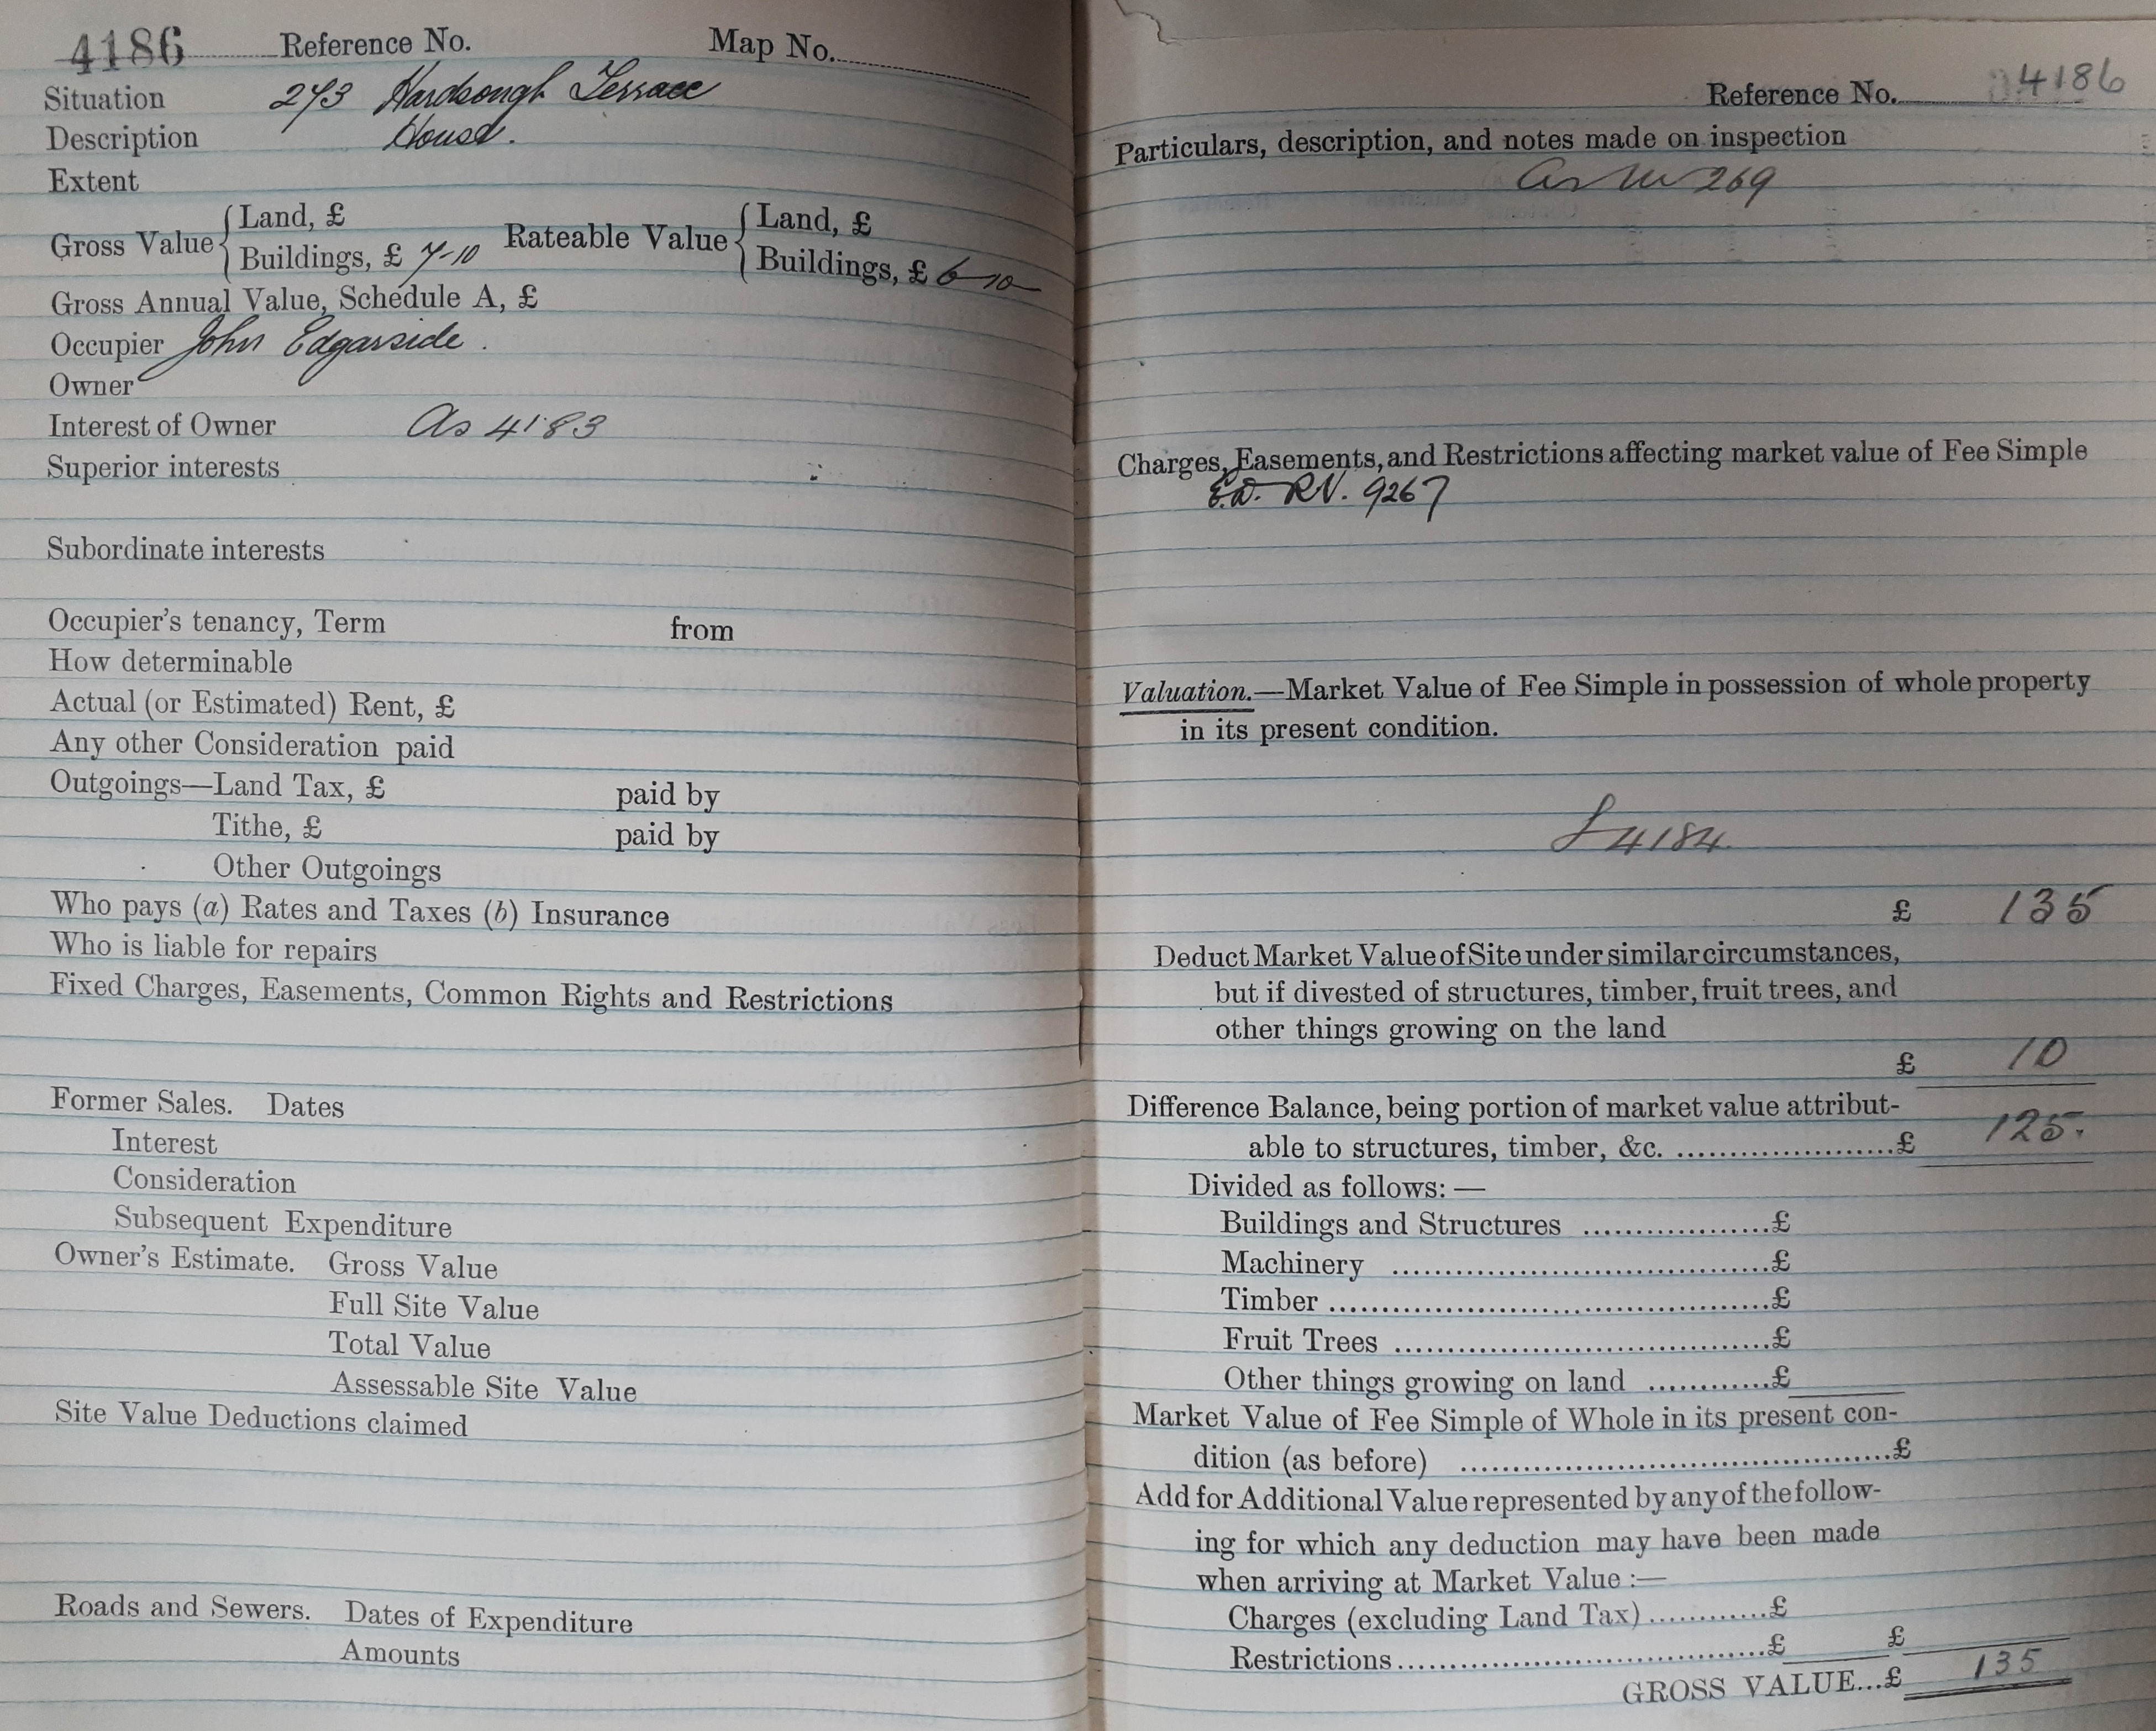 4186 Reference No. Map No.
Situation 273 Hardsough Terrace
Description House.
Extent
Gross Value { Land, £
Buildings, £ 7-10
Rateable Value { Land, £
Buildings, £ 6-10
Gross Annual Value, Schedule A, £
Occupier John Edgarside.
Owner
Interest of Owner As 4183
Superior interests
Subordinate interests
Occupier's tenancy, Term from
How determinable
Actual (or Estimated) Rent, £
Any other Consideration paid
Outgoings—Land Tax, £ paid by
Tithe, £ paid by
Other Outgoings
Who pays (a) Rates and Taxes (b) Insurance
Who is liable for repairs
Fixed Charges, Easements, Common Rights and Restrictions
Former Sales. Dates
Interest
Consideration
Subsequent Expenditure
Owner's Estimate. Gross Value
Full Site Value
Total Value
Assessable Site Value
Site Value Deductions claimed
Roads and Sewers. Dates of Expenditure
Amounts
Reference No. 4186
Particulars, description, and notes made on inspection
as 269
Charges, Easements, and Restrictions affecting market value of Fee Simple
RV. 9267
Valuation.—Market Value of Fee Simple in possession of whole property
in its present condition.
4184.
£ 135
Deduct Market Value of Site under similar circumstances,
but if divested of structures, timber, fruit trees, and
other things growing on the land
£ 10
Difference Balance, being portion of market value attribut-
able to structures, timber, &c. ......................£ 125.
Divided as follows: —
Buildings and Structures ...................£
Machinery ......................................£
Timber .............................................£
Fruit Trees ......................................£
Other things growing on land ............£
Market Value of Fee Simple of Whole in its present con-
dition (as before) ............................................£
Add for Additional Value represented by any of the follow-
ing for which any deduction may have been made
when arriving at Market Value :—
Charges (excluding Land Tax) ............£
Restrictions......................................£ £
GROSS VALUE...£ 135